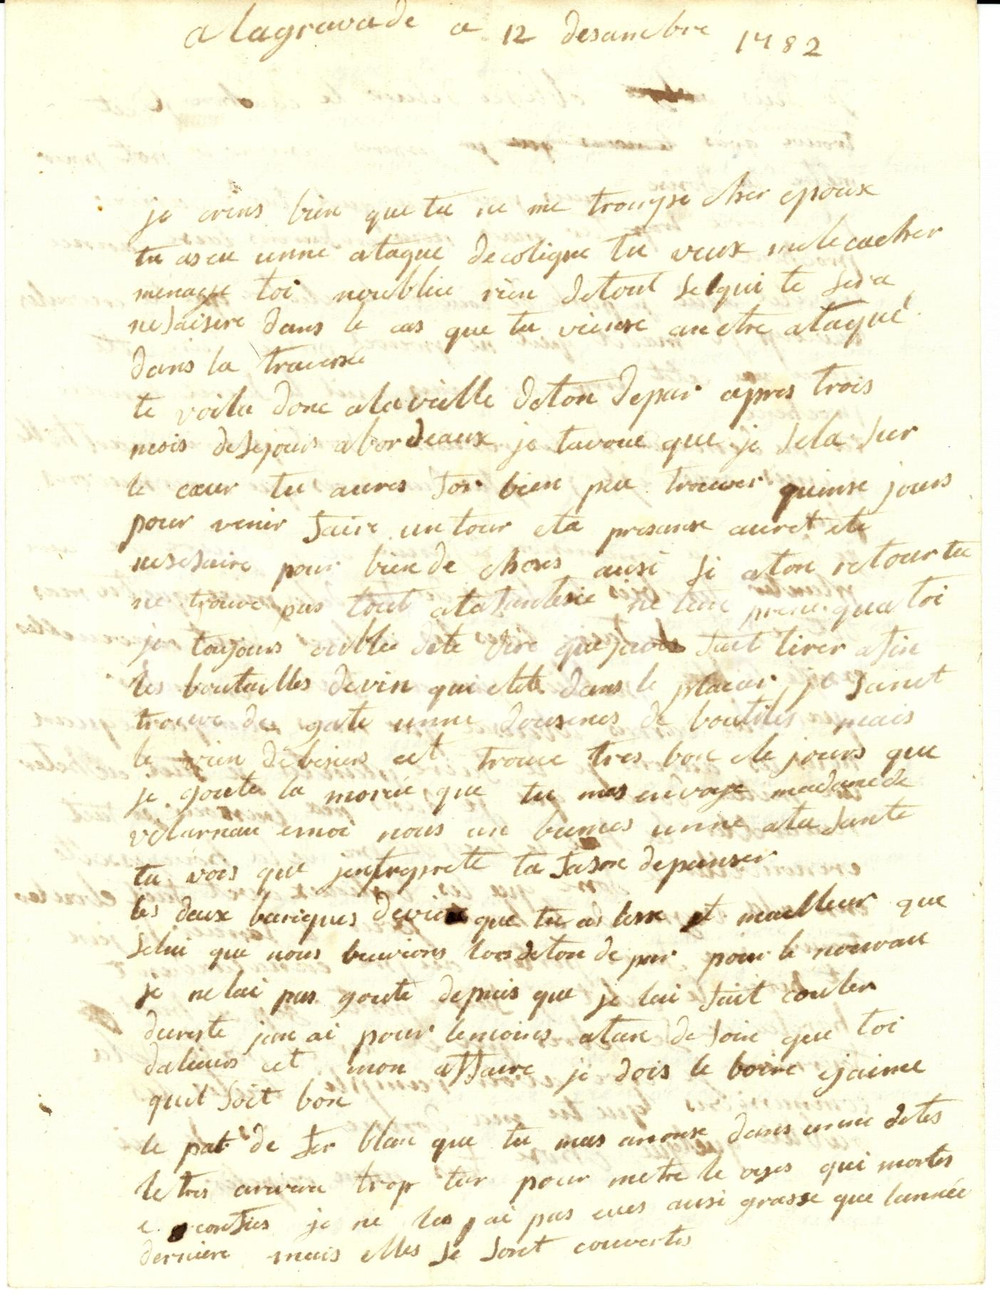 a lagravade a 12 desambre 1782
je crins bien que tu ne me trompse cher epoux
tu as eu unne ataque de colique tu veux me le cacher
menage toi noublie rien de tout se qui te sera
nesaisere dans le cas que tu viense an etre ataqué
dans la traversée
te voila donc a la veille de ton depar apres trois
mois de sejours a bordeaux je tavoue que je sela sur
le cœur tu aures for bien peu trouver quinse jours
pour venir faire un tour eta presanse auret ete
nesesaire pour bien de choses ausi si a ton retour tu
ne trouve pas tout a ta fantesie ne ten prene qua toi
je toujours oublie de te dire que javes fait tirer a fin
les boutailles de vin qui etet dans le placar je sanet
trouve de gate unne dousenes de boutiles mais
le vin de besiers est trouve tres bon ete jours que
je goute la morue que tu mas envoye madame de
vilarneau emoi nous en bumes unne a ta sante
tu vois que jentreprete ta fason de panser
les deux bariques de vin que tu as lesse et mailleur que
selui que nous beuvions lors de ton de par pour le nouvau
je ne lai pas goute depuis que je lai fait couler
dureste jan ai pour le moins atan de soin que toi
dalieurs cet mon affaire je dois le boire ejaime
quil soit bon
le pat de fer blan que tu mas anonse dans unne de tes
letres arivera trop tar pour metre le oyes qui mortes
e confies je ne les ai pas eues ausi grasse que lannée
derniere mais elles se sont couvertes